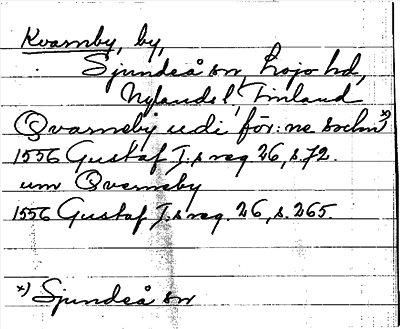 Kvarnby, by,
Sjundeå sn, Lojo hd,
Nylands l, Finland
Qvarneby udi för:ne sochn *)
1556 Gustaf I:s reg. 26, s. 72.
um Qverneby
1556 Gustaf I:s reg. 26, s. 265.
*) Sjundeå sn